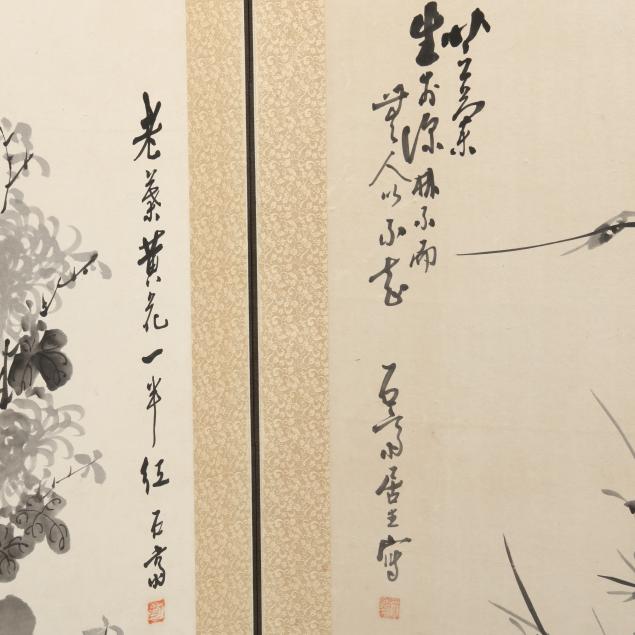 芝蘭
生於深林不而
無人以不芳
石齋居士寫
老葉黃花一半紅
石齋